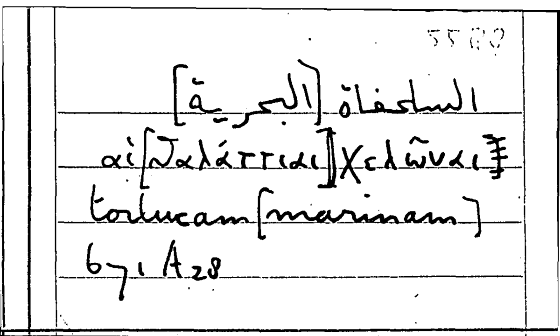 السلحفاة [البحرية]
αἱ [θαλάττιαι] χελῶναι
tortucam [marinam]
671 A 28